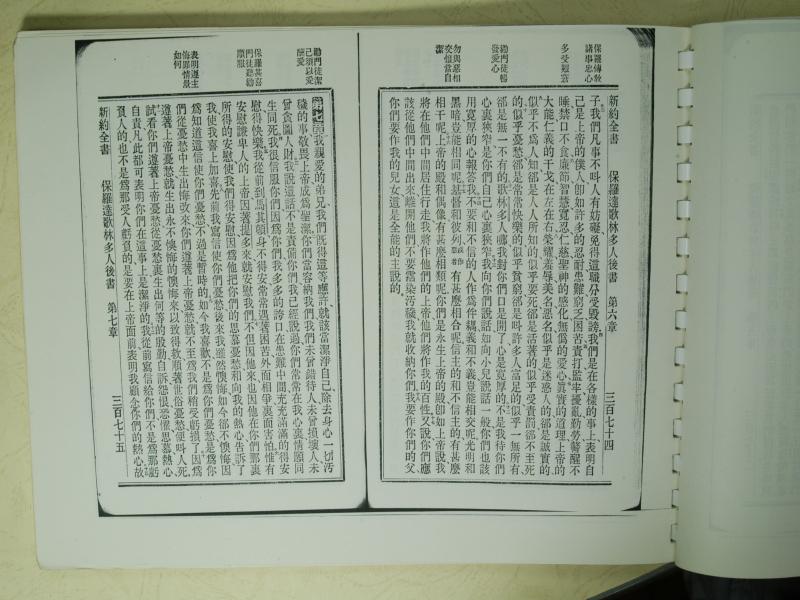 保羅傳敎
諸事忠心
多受艱苦
勸門徒當
發愛心
勿與惡相
交惟當自
潔
新約全書 保羅達歌林多人後書 第六章 三百七十四
子我們凡事不叫人有妨礙免得這職分受毀謗我們是在各樣的事上表明自
己是上帝的僕人卽如許多的忍耐患難窮乏困苦責打監牢擾亂勤勞儆醒不
睡禁口不食廉節智慧寬忍仁慈聖神的感化無僞的愛心眞實的道理上帝的
大能仁義的干戈在左在右榮耀羞辱美名惡名似乎是迷惑人的郤是誠實的
似乎不爲人知郤是人人所知的似乎要死郤是活著的似乎受責罰郤不至死
的似乎憂愁郤是常常快樂的似乎貧窮郤是叫許多人富足的似乎一無所有
郤是無一不有的歌林多人哪我對你們口是開了心是寬厚的不是我待你們
心裏狹窄是你們自己心裏狹窄我向你們說話如向小兒說話一般你們也該
用寬厚的心報答我不要和不信的人作爲件耦義和不義豈能相交呢光明和
黑暗豈能相同呢基督和彼列有甚麼相合呢信主的和不信主的有甚麼
相干呢上帝的殿和偶像有甚麼相類呢你們是永生上帝的殿卽如上帝說我
將在他們中間居住行走我將作他們的上帝他們將作我的百姓又說你們應
該從他們中間出來離開他們不要常染污穢我就收納你們我要作你們的父
你們要作我的兒女這是全能的主說的
勸門徒潔
己須以愛
酬愛
保羅甚喜
門徒聽勸
順服
表明遵主
悔罪情景
如何
第七章我親愛的弟兄我們既得這等應許就該當潔淨自己除去身心一切污
穢的事敬畏上帝成爲聖潔你們當容納我們我們未曾錯待人未曾損壞人未
曾貪圖人財我說這話不是責備你們我已經說過你們常常在我心裏情願同
生同死我很信服你們因爲你們我多多的誇口在患難中間充充滿滿的得安
慰得快樂我從前到馬其頓身不得安常常遇著困苦外面相爭裏面害怕惟有
安慰謙卑人的上帝因著提多來就安慰我們不但因他來也因他在你們那裏
所得的安慰使我們得安慰因爲他把你們的思慕憂愁和向我的熱心告訴了
我使我喜上加喜先前我寫信使你們憂愁後來我雖然懊悔如今郤不懊悔因
爲知道這信使你們憂愁不過是暫時的如今我喜歡不是爲你們憂愁是爲你
們從憂愁中生出悔改來你們遵著上帝憂愁就不至爲我們稍受虧損了因爲
遵著上帝憂愁就生出永不懊悔的懊悔來以致得救順著世俗憂愁便叫人死
試看你們遵著上帝憂愁從憂愁裏生出何等的殷勤自訴怨恨恐懼思慕熱心
自責凡此都可表明你們在這事上是潔淨的我從前寫信給你們不是爲那虧
負人的也不是爲那受人虧負的是要在上帝面前表明我顧念你們的熱心故
新約全書 保羅達歌林多人後書 第七章 三百七十五